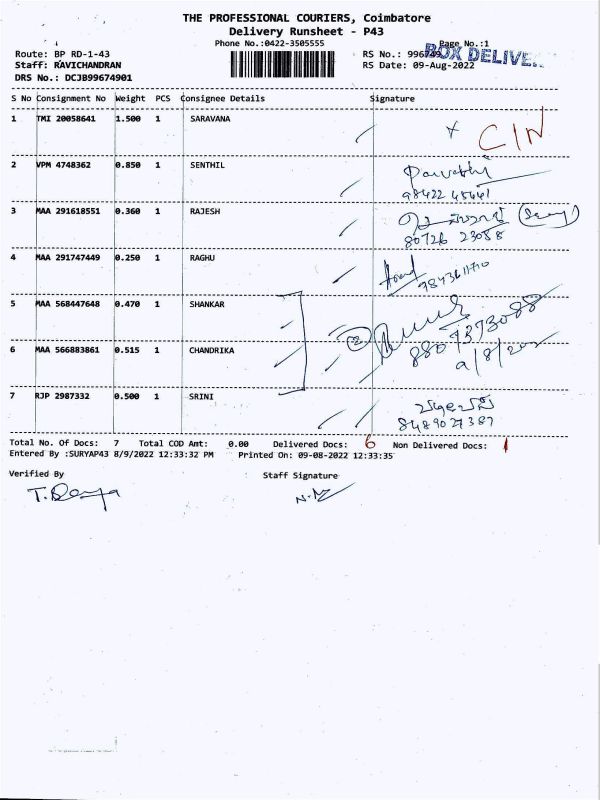 THE PROFESSIONAL COURIERS, Coimbatore
Delivery Runsheet - P43
Phone No.:0422-3505555
Page No.:1
BOX DELIVE
Route: BP RD-1-43
RS No.: 996749
Staff: RAVICHANDRAN
RS Date: 09-Aug-2022
DRS No.: DCJB99674901
S No Consignment No Weight PCS Consignee Details Signature
1 TMI 20058641 1.500 1 SARAVANA
x CIN
2 VPM 4748362 0.850 1 SENTHIL
98422 45641
3 MAA 291618551 0.360 1 RAJESH
80726 23088
4 MAA 291747449 0.250 1 RAGHU
9843611710
5 MAA 568447648 0.470 1 SHANKAR
2
8807373088
6 MAA 566883861 0.515 1 CHANDRIKA
7 RJP 2987332 0.500 1 SRINI
8489027387
Total No. Of Docs: 7 Total COD Amt: 0.00 Delivered Docs: 6 Non Delivered Docs: 1
Entered By :SURYAP43 8/9/2022 12:33:32 PM Printed On: 09-08-2022 12:33:35
Verified By Staff Signature